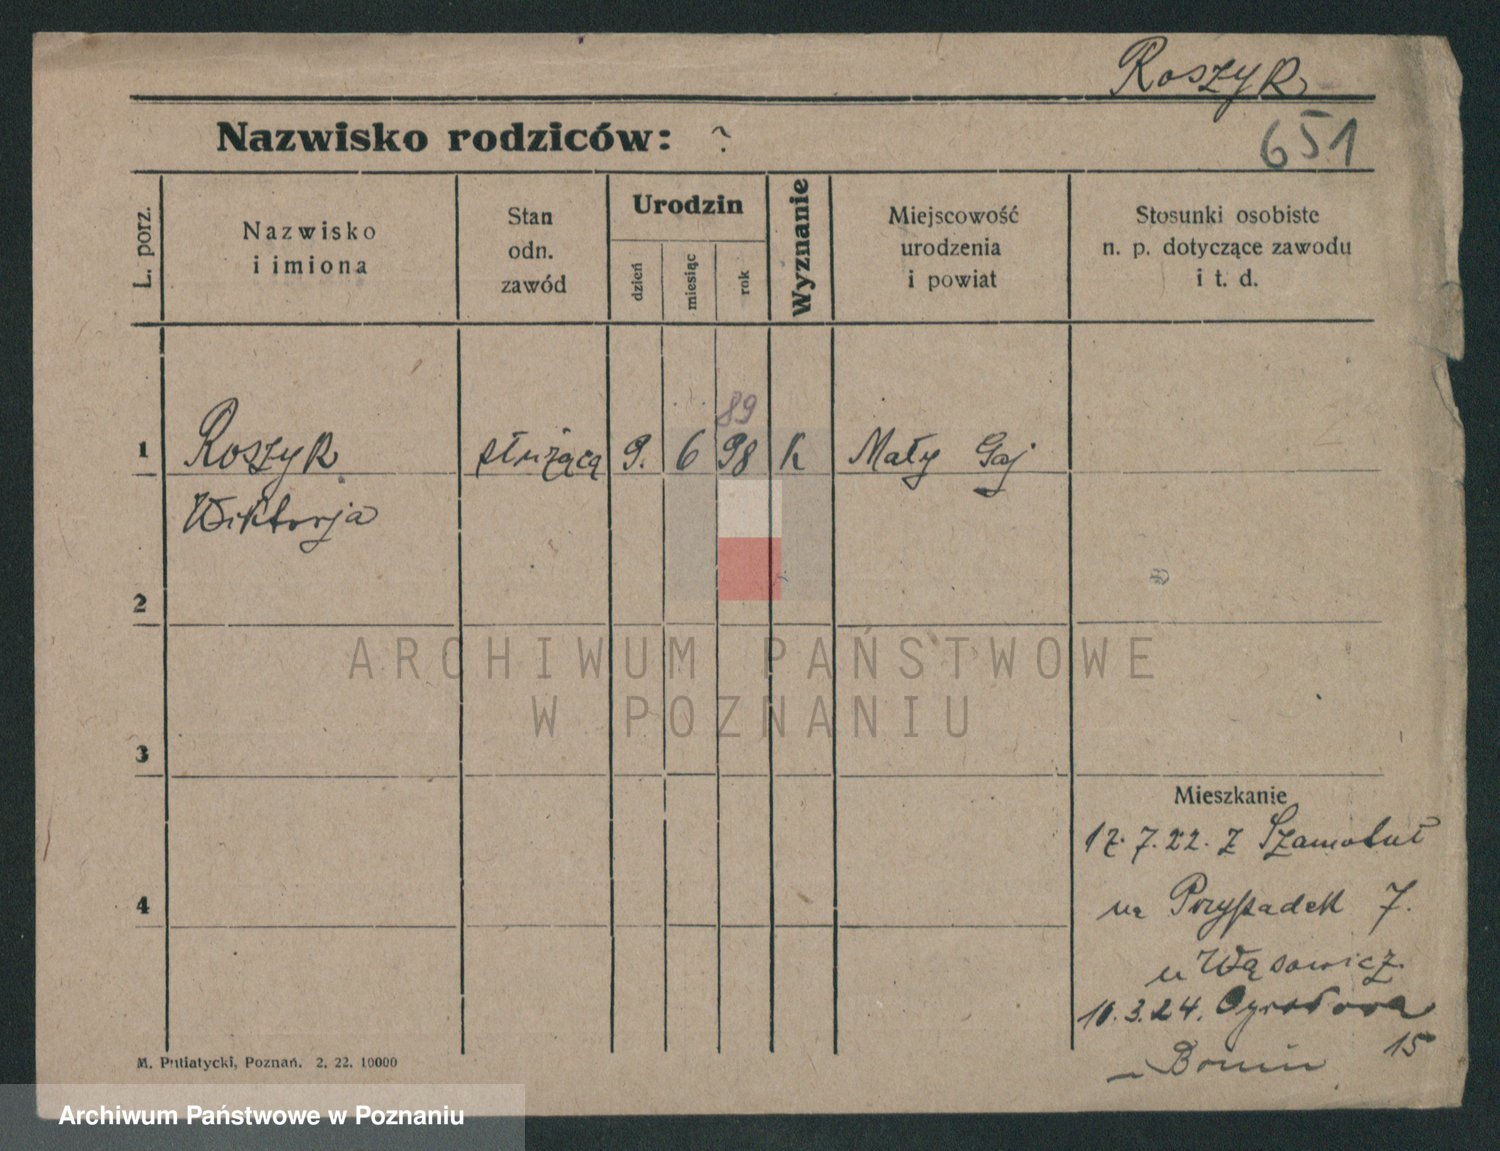 Roszyk
Nazwisko rodziców: ?
651
L. porz.
Nazwisko
i imiona
Stan
odn.
zawód
Urodzin
dzień
miesiąc
rok
Wyznanie
Miejscowość
urodzenia
i powiat
Stosunki osobiste
n. p. dotyczące zawodu
i t. d.
89
1 Roszyk służącą 9. 6 98 k Mały Gaj
Wiktorja
2
ARCHIWUM PAŃSTWOWE
W POZNANIU
3
Mieszkanie
17. 7. 22. z Szamotuł
4
na Przypadek 7.
u Wąsowicz.
10. 3. 24. Ogrodowa
15
Bonin
M. Putiatycki, Poznań. 2. 22. 10000
Archiwum Państwowe w Poznaniu